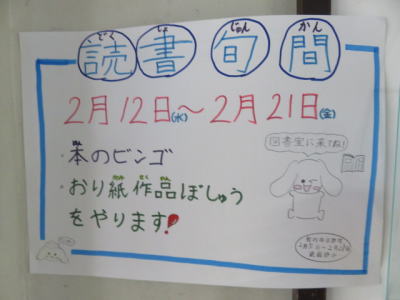 読書旬間
2月12日(水)～2月21日(金)
・本のビンゴ
・おり紙作品ぼしゅう
をやります!
図書室に来てね!